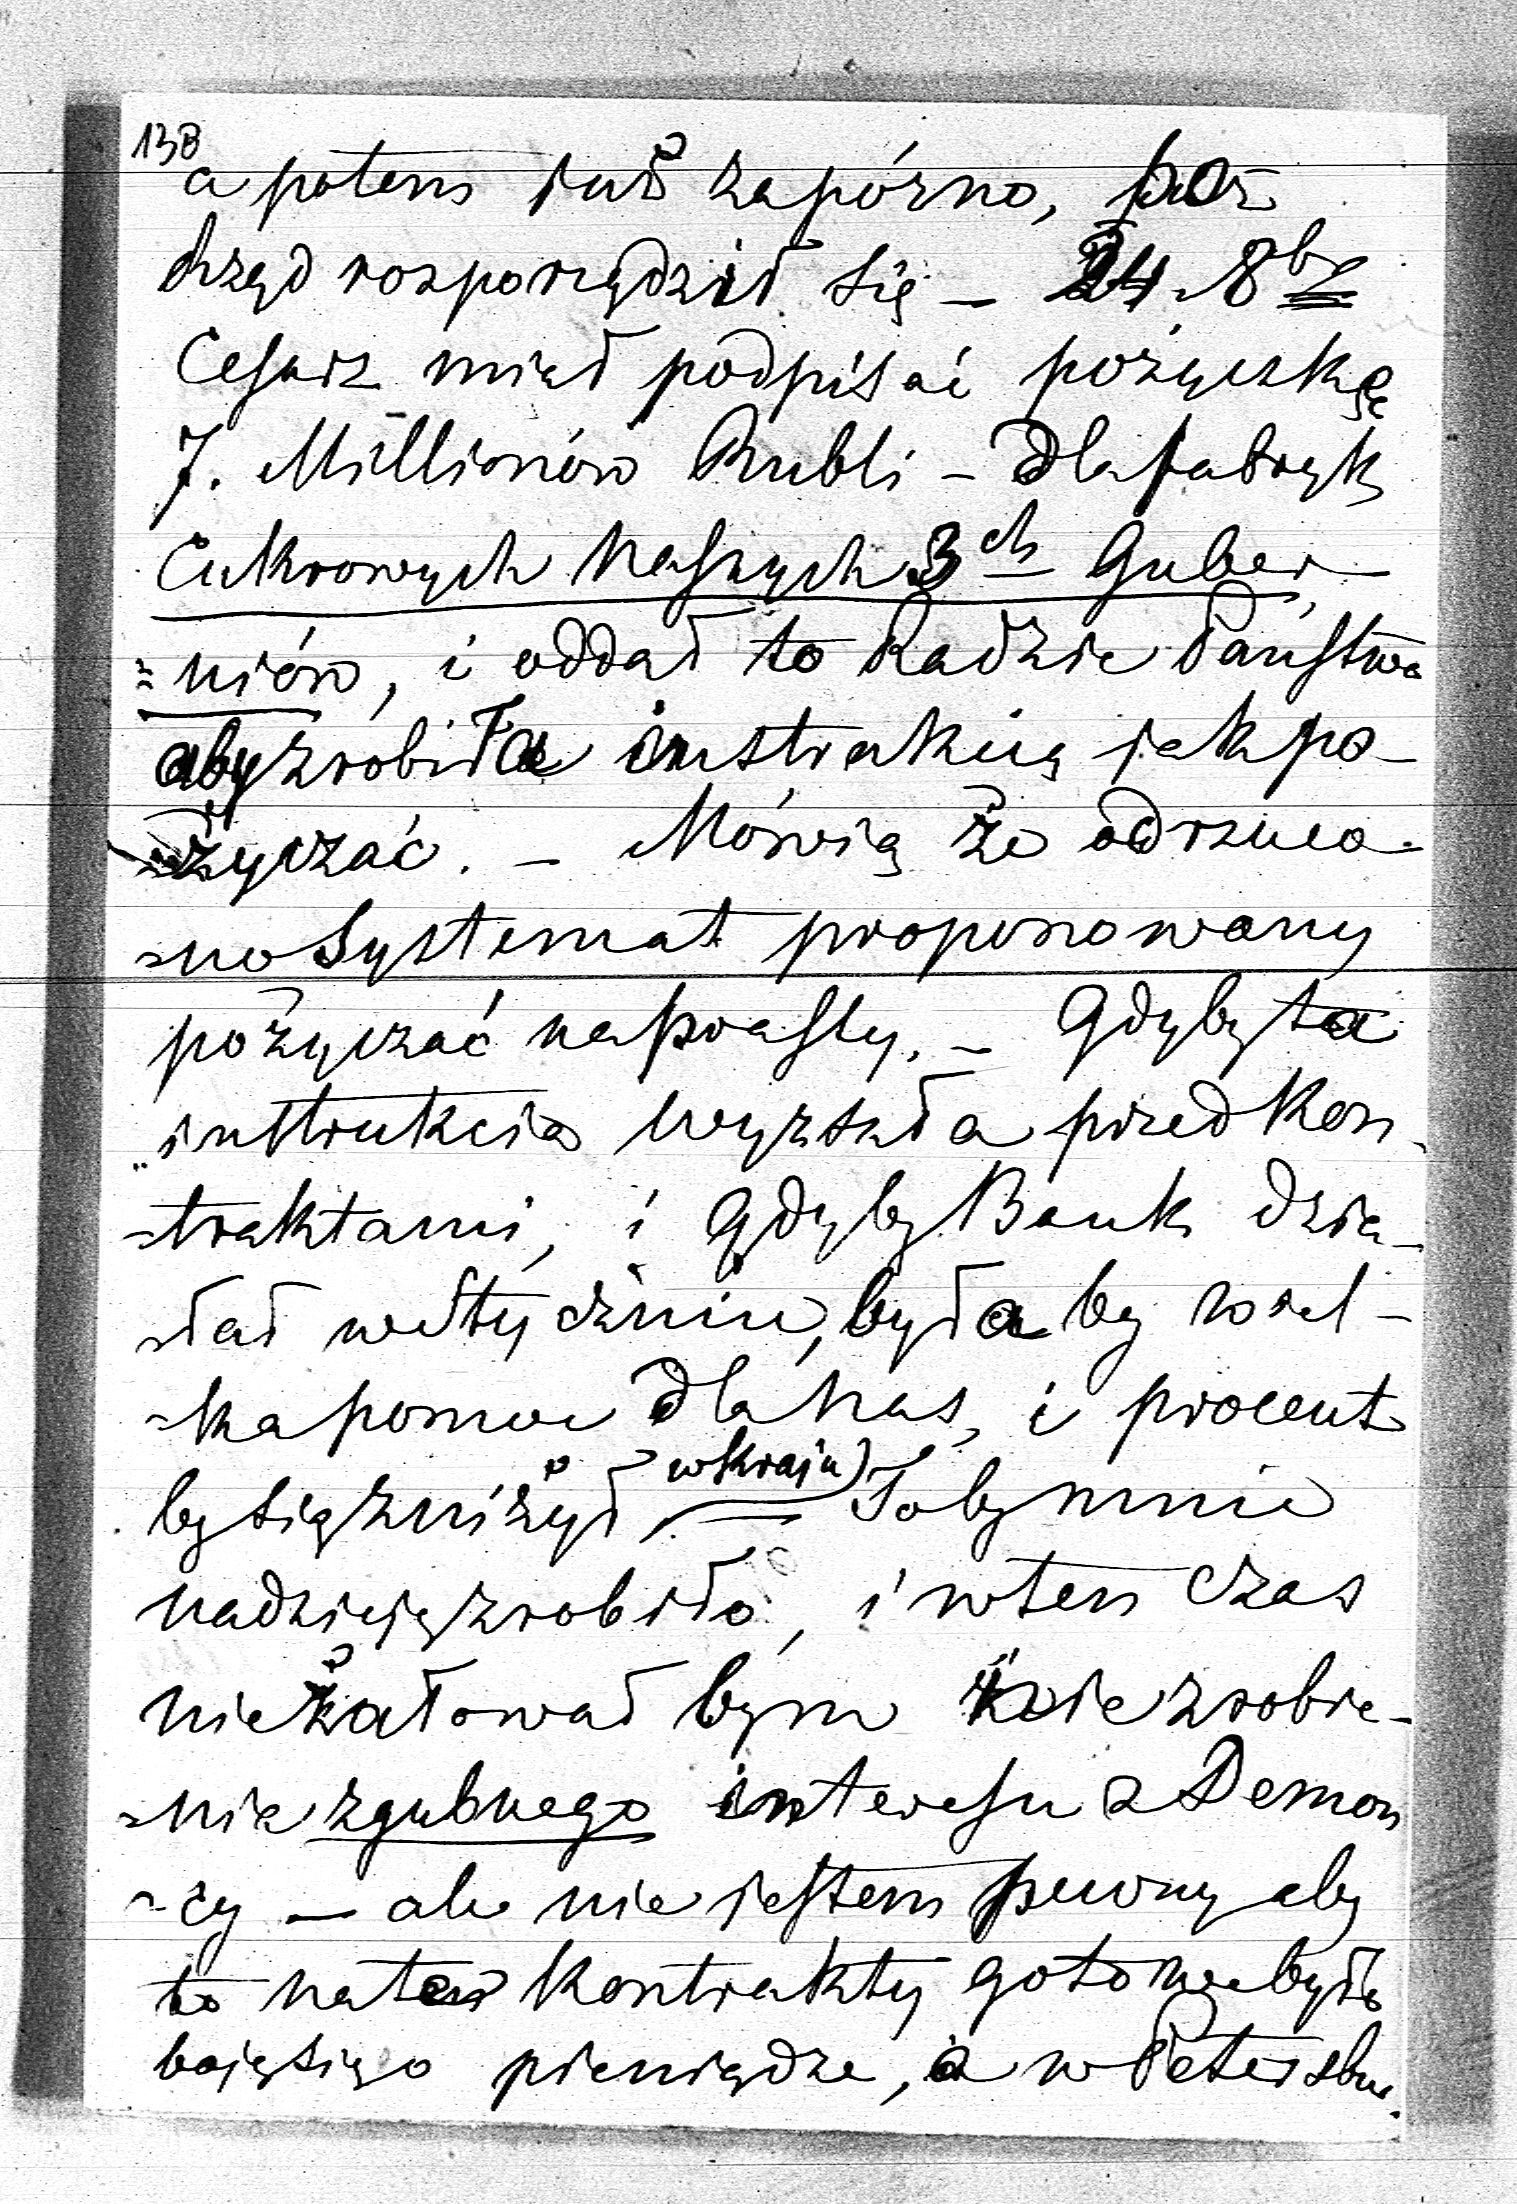 138
a potem już zapózno, bo
Rząd rozporządził się – 24 8br
Cesarz miał podpisać pożyczkę
7. Millionów Rubli – dla fabryk
Cukrowych naszych 3ch Guber
=niów, i oddał to Radzie Państwa
aby zrobiła instrukcią jak po-
życzać. – Mówią że odrzuco-
-no Systemat proponowany
pożyczać na prassy. – Gdyby ta
instrukcia wyszła przed Kon-
-traktami, i gdyby Bank dzia-
-łał w Styczniu, była by wiel-
-ka pomoc dla nas, i procent
by się zniżył w kraju) To by mnie
nadzieję zrobiło, i wten czas
nie żałował bym nie zrobie-
-nie zgubnego interesu z Demon
-cy – ale nie jestem pewny aby
to na ten Kontrakty gotowe było
boję się o pieniądze, a w Petersbur-